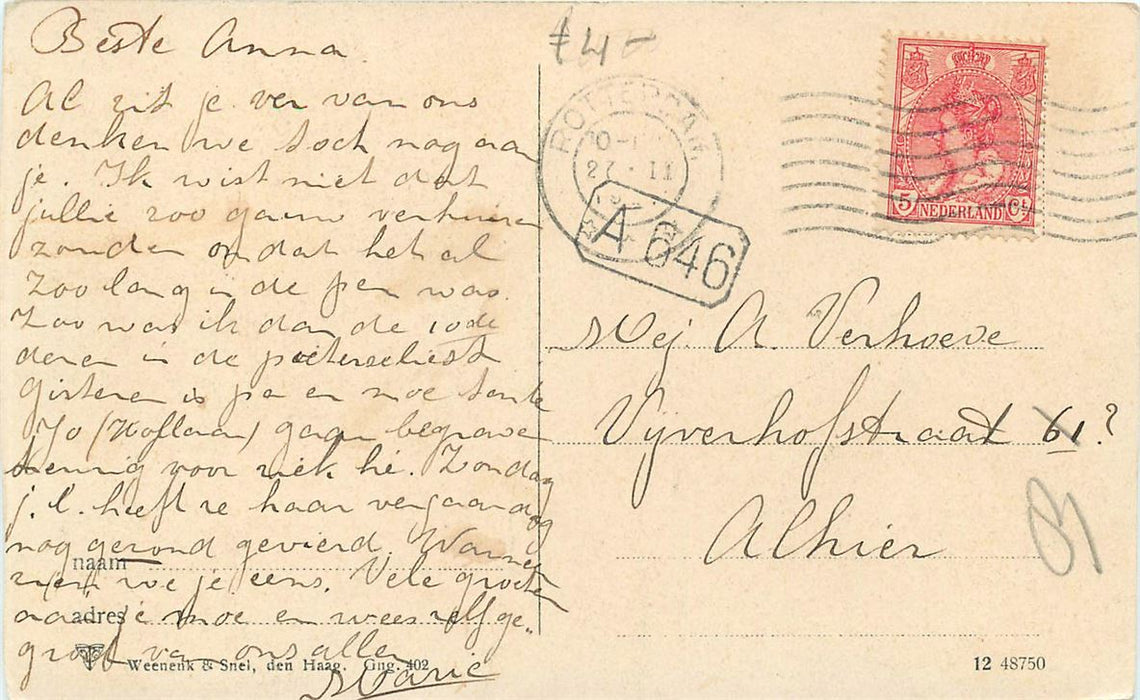 Beste Anna
Al zit je ver van ons
denken we toch nog aan
je. Ik wist niet dat
jullie zoo gauw verhuizen
zouden omdat het al
zoo lang in de pen was.
Zoo was ik dan de
deren in de
gisteren is pa en moe tante
Jo (Koflaan) gaan begraven
treurig voor riek hè. Zondag
j.l. heeft ze haar verjaardag
nog gezond gevierd. Wanneer
zien we je eens. Vele groeten
aan je moe en wees zelf ge-
groet van ons allen
Marie
naam
adres
Weenenk & Snel, den Haag. Gng. 402
£4-
ROTTERDAM
27.11
A 646
5 NEDERLAND Ct.
Mej. A. Verhoeve
Vijverhofstraat 61?
Alhier
12 48750